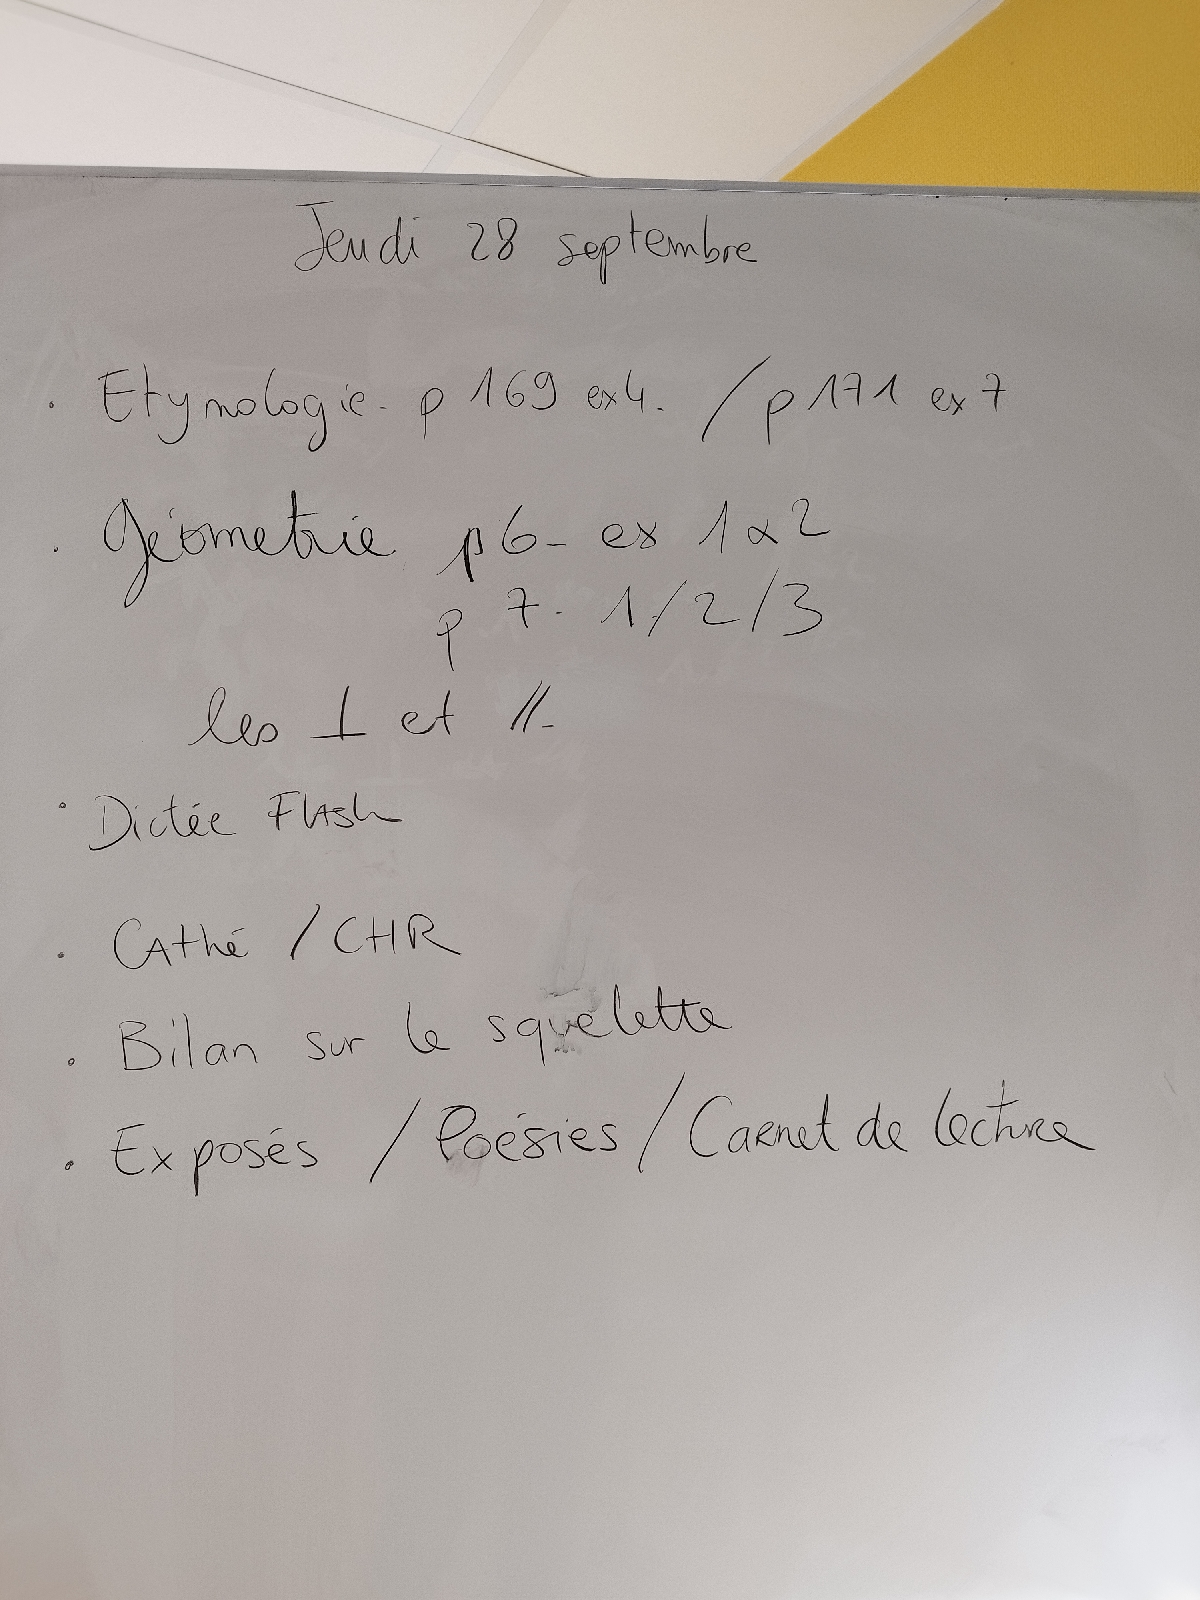 Jeudi 28 septembre
. Etymologie. p 169 ex 4. / p 171 ex 7
. Géometrie p 6 - ex 1 & 2
p 7 - 1/2/3
les ⊥ et //.
. Dictée Flash
. Cathé / CHR
. Bilan sur le squelette
. Exposés / Poésies / Carnet de lecture